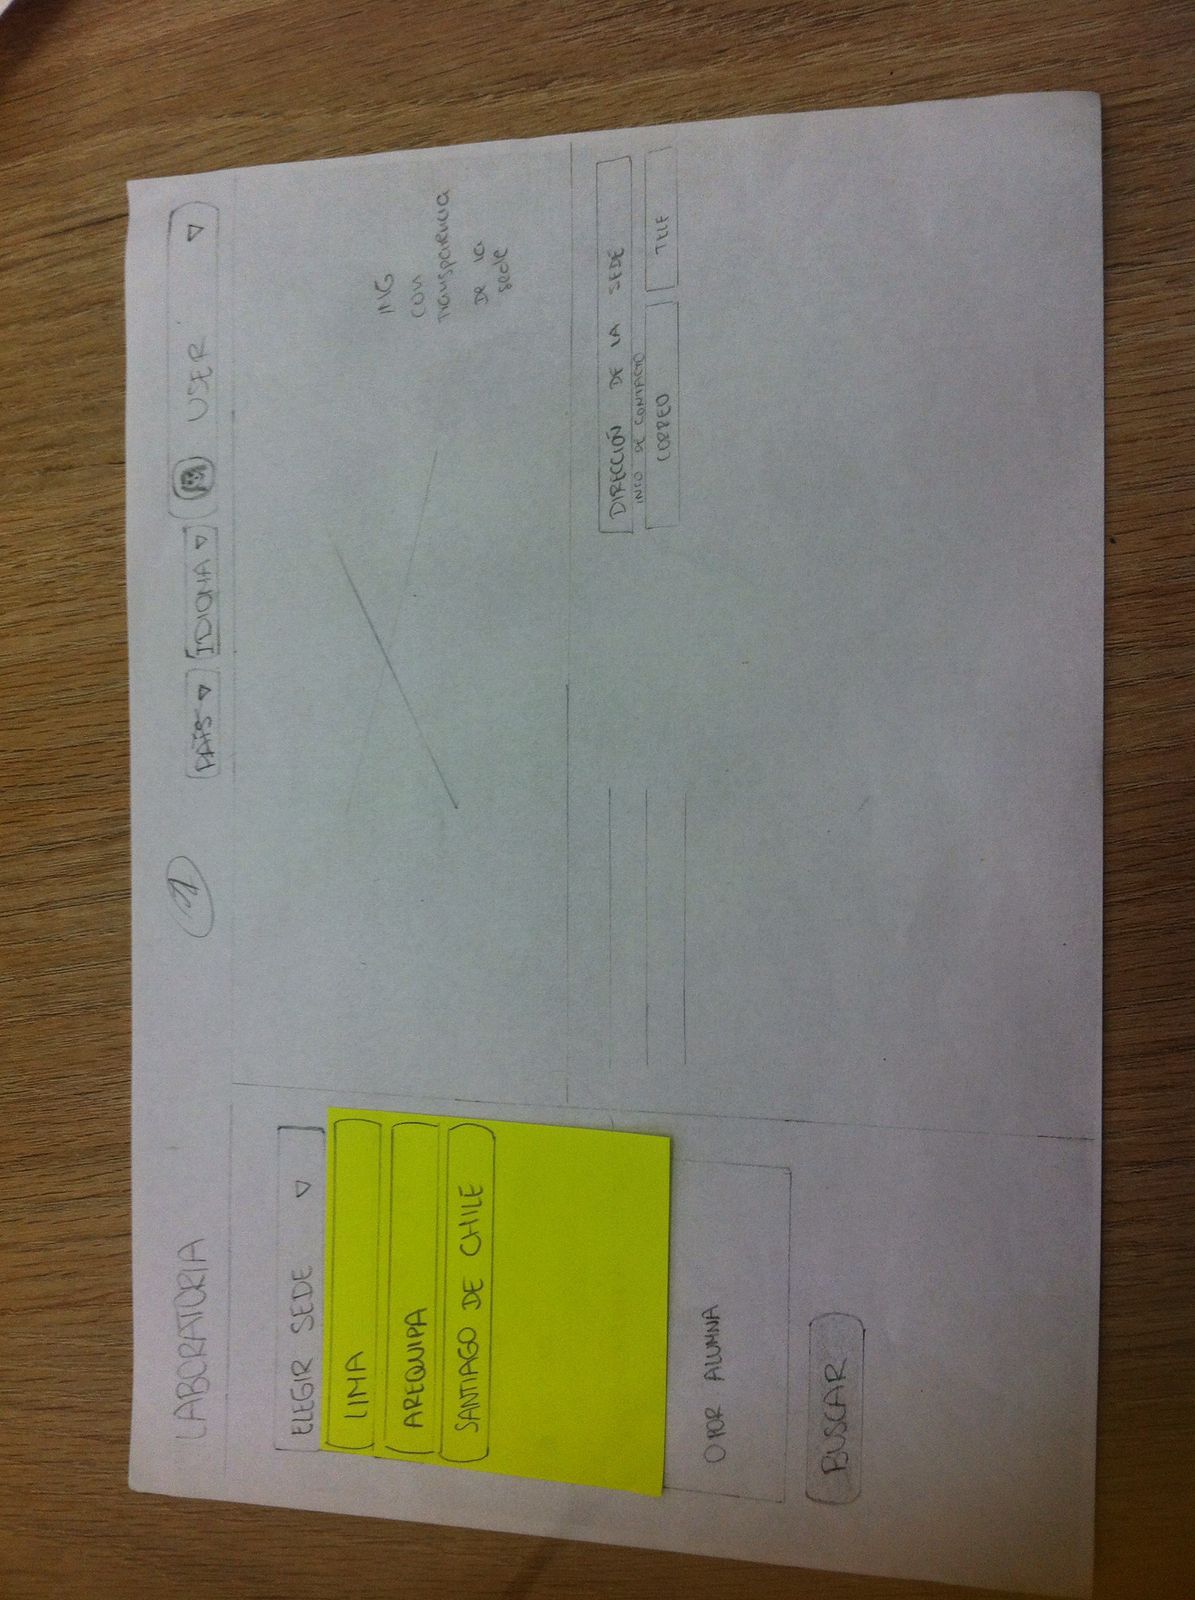 LABORATORIA
1
PAÍS
IDIOMA
USER
ELEGIR SEDE
LIMA
AREQUIPA
SANTIAGO DE CHILE
O POR ALUMNA
BUSCAR
IMG
con
transparencia
De la
sede
DIRECCIÓN DE LA SEDE
INFO DE CONTACTO
CORREO
TELF